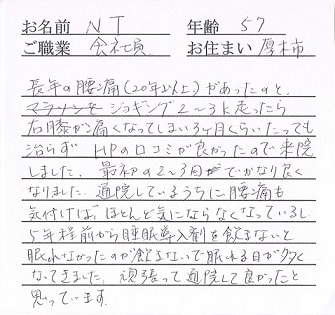 お名前 NT 年齢 57
ご職業 会社員 お住まい 厚木市
長年の腰痛(20年以上)があったのと、
マラソンを ジョギング2〜3k走ったら
右膝が痛くなってしまい3ヶ月くらいたっても
治らず HPの口コミが良かったので来院
しました。最初の2〜3回でかなり良く
なりました。通院しているうちに腰痛も
気付けばほとんど気にならなくなっているし
5年程前から睡眠導入剤を飲まないと
眠れなかったのが飲まないで眠れる日が多く
なってきました。頑張って通院して良かったと
思っています。